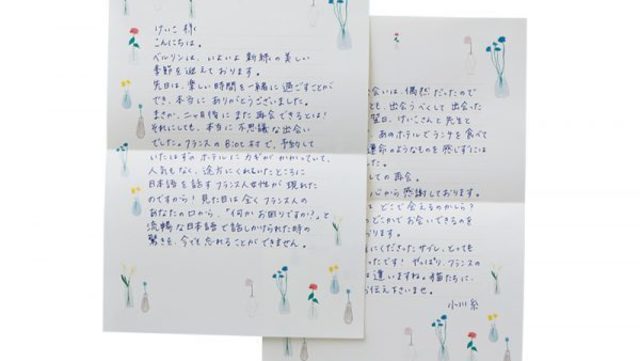 けいこ 様
こんにちは。
ベルリンは、いよいよ新緑の美しい
季節を迎えております。
先日は、楽しい時間を一緒に過ごすことが
でき、本当に ありがとうございました。
まさか、二ヶ月後にまた再会できるとは!
それにしても、本当に不思議な出会い
でした。フランスのBiot村で、予約して
いたはずのホテルにカギがかかっていて、
人気もなく、途方にくれていたところに
日本語を話すフランス人女性が現れた
のですから! 見た目は全くフランス人の
あなたの口から、「何かお困りですか?」と
流暢な日本語で話しかけられた時の
驚きを、今でも忘れることができません。
会いは、偶然だったので
とも、出会うべくして出会った
翌日、けいこさんと先生と
、あのホテルでランチを食べて
運命のようなものを感じずには
した。
しての再会。
心から感謝しております。
は どこで会えるのかしら?
どこかでお会いできるのを
おります。
にくださったサブレ、とっても
ったです! やっぱり、フランスの
は違いますね。猫たちに、
お伝え下さいませ。
小川 糸